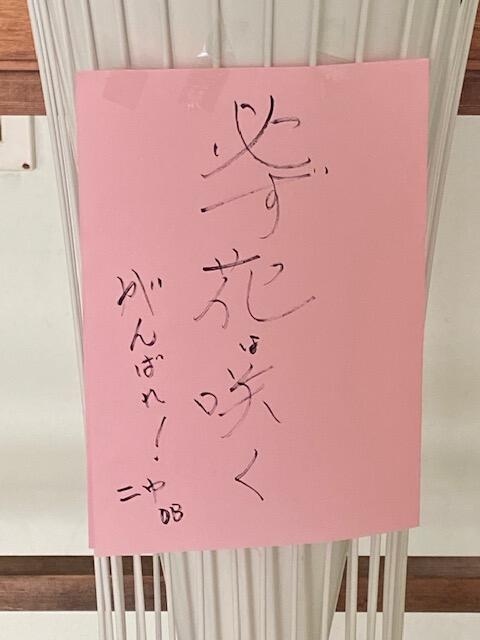 必ず花は咲く
がんばれ！
二中
OB